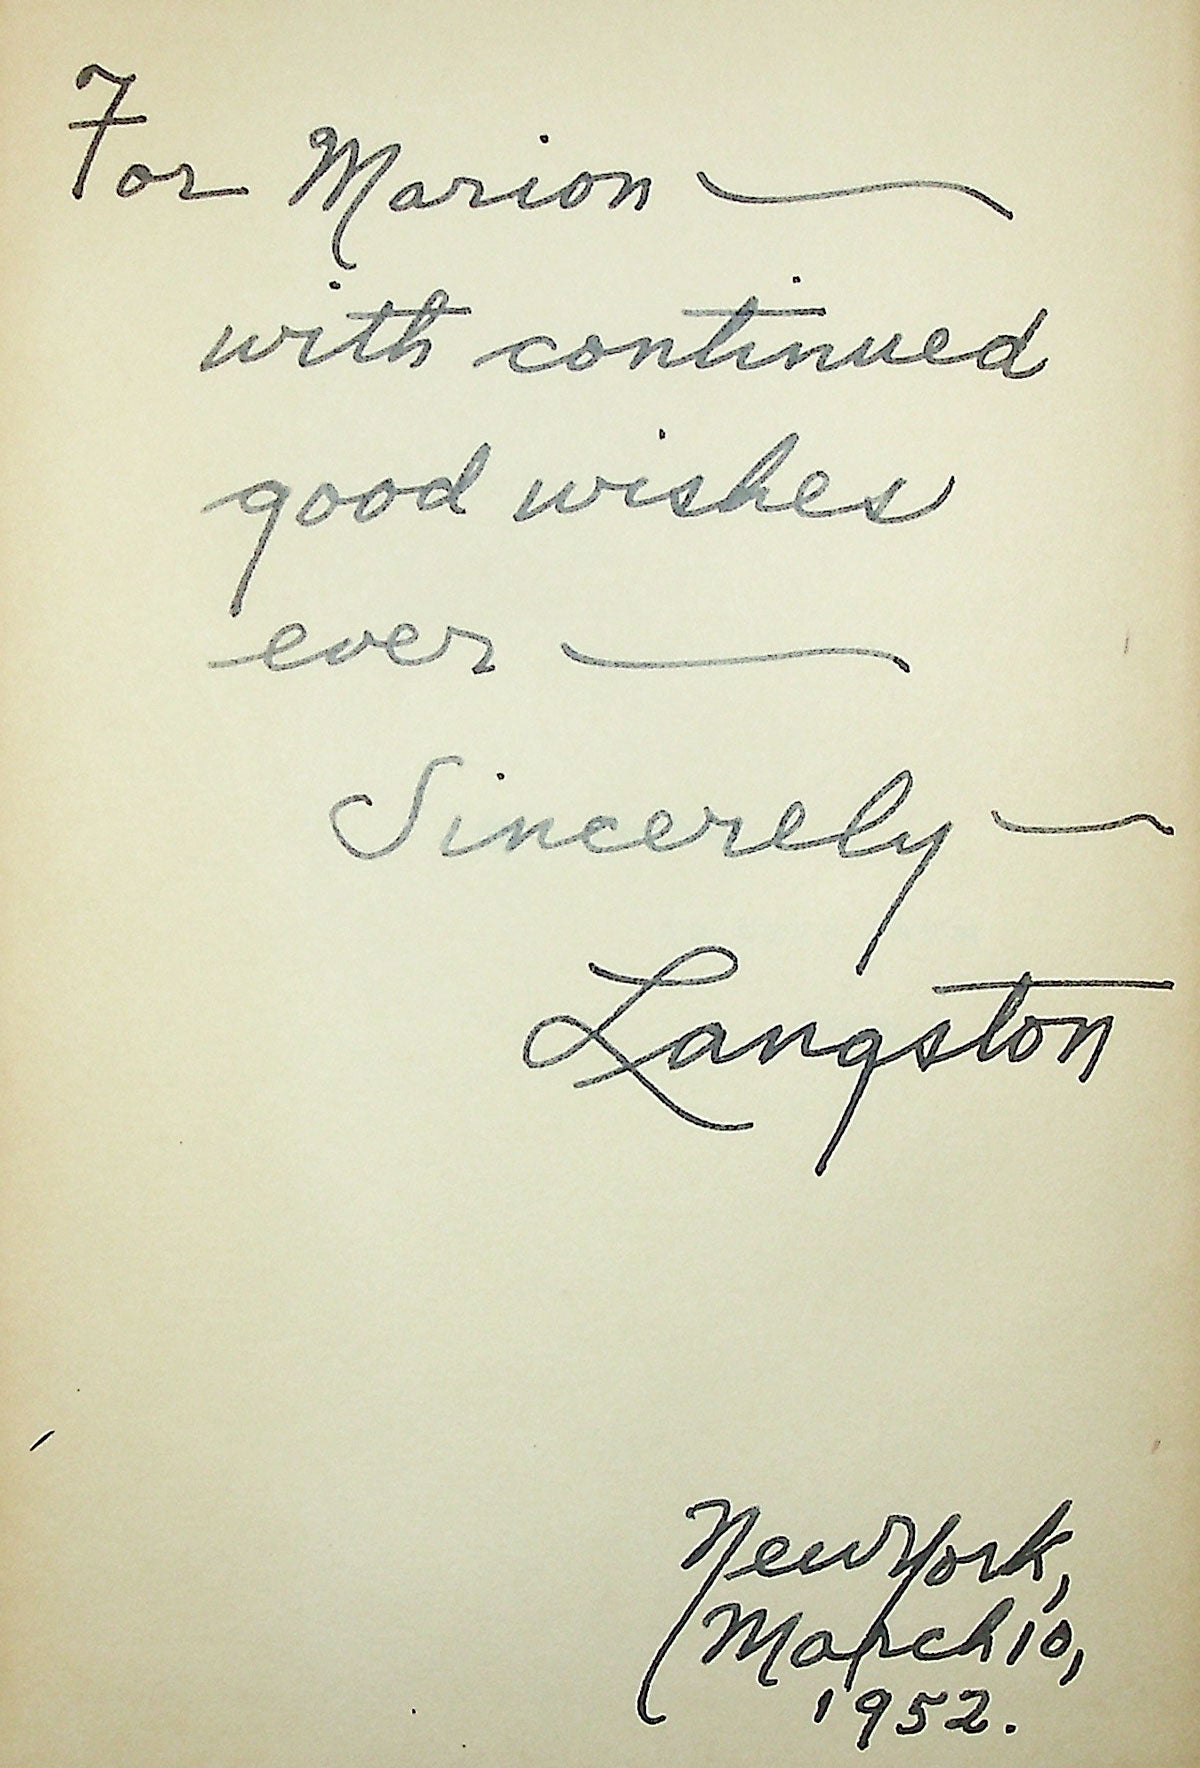 For Marion —
with continued
good wishes
ever —
Sincerely —
Langston
New York,
March 10,
1952.